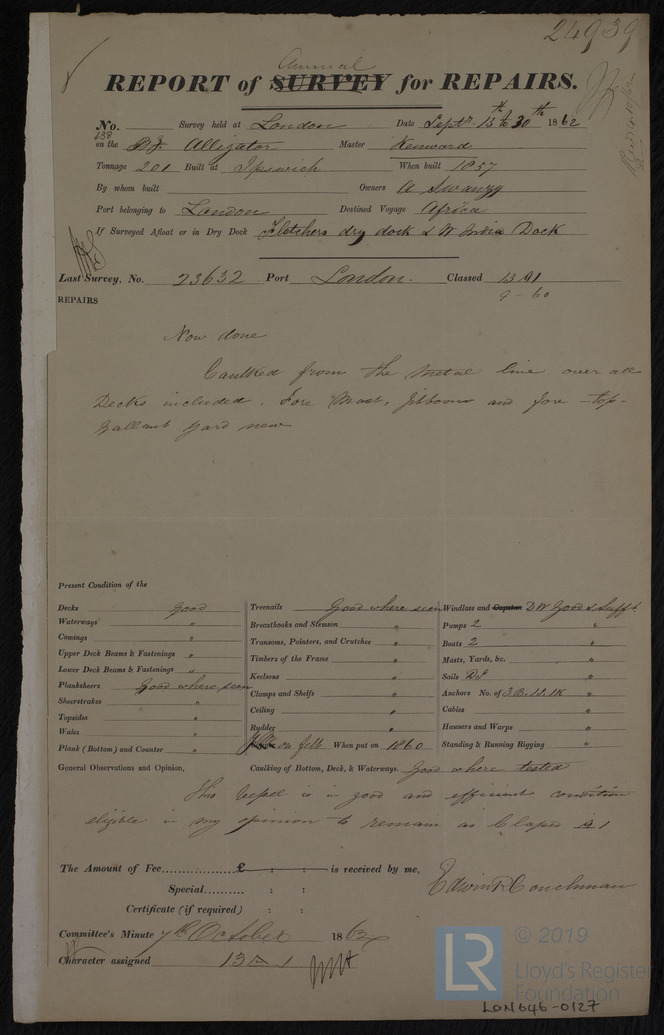 24939
Annual
REPORT of SURVEY for REPAIRS.
No. 638 Survey held at London Date Septr 13th to 30th 1862
on the Bg. Alligator Master Kenward
Tonnage 201 Built at Ipswich When built 1857
By whom built Owners A Swanzy
Port belonging to London Destined Voyage Africa
If Surveyed Afloat or in Dry Dock Fletchers dry dock & W India Dock
Last Survey, No. 23632 Port London. Classed 13 A1
9-60
REPAIRS
Now done
Caulked from the Metal line over all
Decks included. Fore Mast, Jibboom and fore-top-
gallant yard new
Present Condition of the
Decks Good
Waterways "
Comings "
Upper Deck Beams & Fastenings "
Lower Deck Beams & Fastenings "
Planksheers Good where seen
Sheerstrakes "
Topsides "
Wales "
Plank (Bottom) and Counter "
Treenails Good where seen
Breasthooks and Stemson "
Transoms, Pointers, and Crutches "
Timbers of the Frame "
Keelsons "
Clamps and Shelfs "
Ceiling "
Rudder "
on felt When put on 1860
Windlass and Capstan DW Good & Sufft
Pumps 2 "
Boats 2 "
Masts, Yards, &c. "
Sails "
Anchors No. of 3B. 1S. 1K "
Cables "
Hawsers and Warps "
Standing & Running Rigging "
Caulking of Bottom, Deck, & Waterways. Good where tested
General Observations and Opinion,
This Vessel is in good and efficient condition
eligible in my opinion to remain as Classed A 1
The Amount of Fee............... £ : : is received by me,
Special......... : :
Certificate (if required) : :
Edwin R Couchman
Committee's Minute 7th October 1862
Character assigned 13 A 1
© 2019
LR
Lloyd's Register
Foundation
LON646-0127